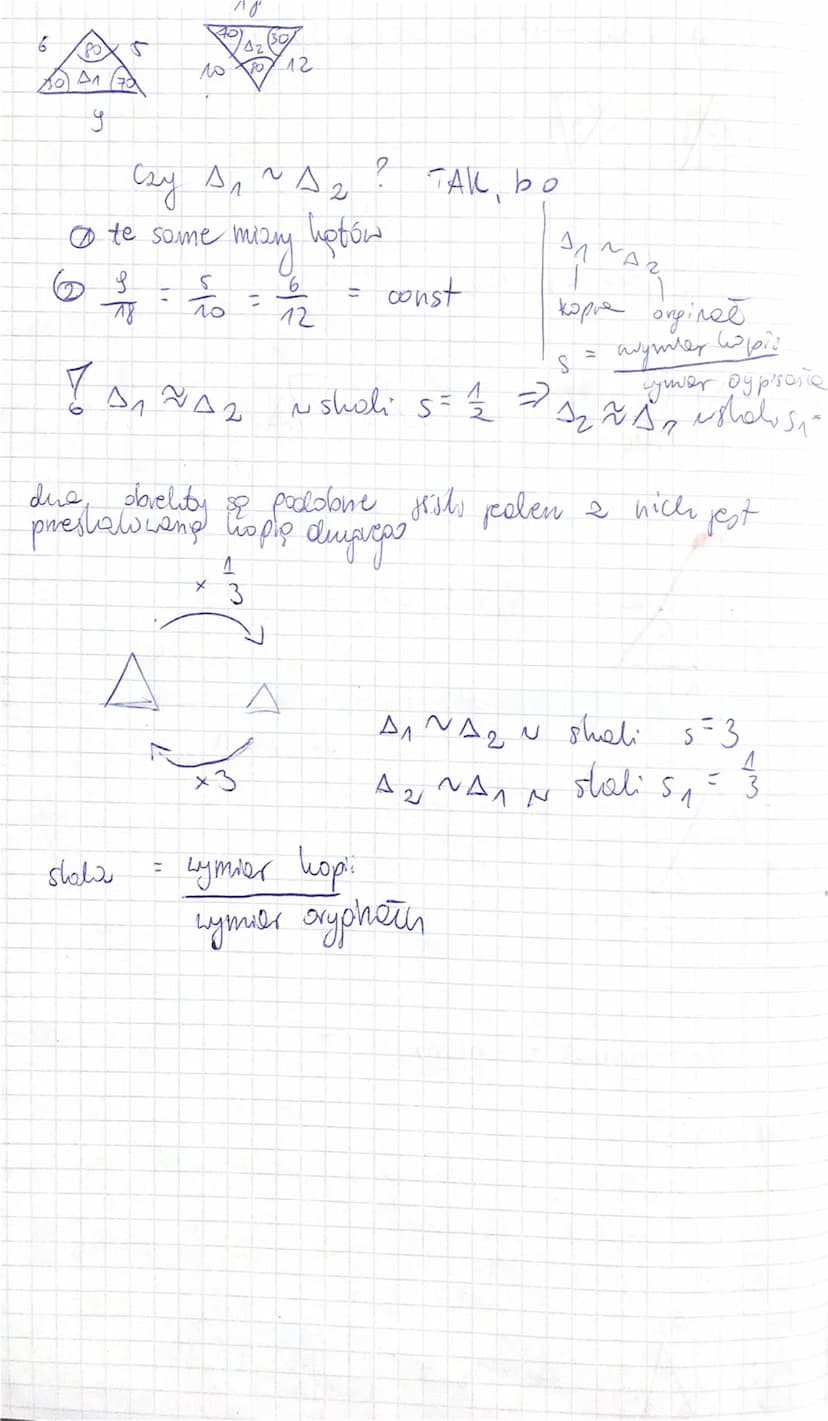 18
6 80 5 70 Δ2 30
30 Δ1 70 10 80 12
9
Czy Δ1 ~ Δ2 ? TAK, bo
① te same miary kątów
Δ1 ~ Δ2
② 9/18 = 5/10 = 6/12 = const
kopia orginał
s = wymiar kopii / wymiar
! Δ1 ≈ Δ2 w skali s = 1/2 ⇒ Δ2 ≈ Δ1 w skali s1 =
dwa obiekty są podobne jeśli jeden z nich jest
przeskalowaną kopią drugiego
× 1/3
Δ1 ~ Δ2 w skali s = 3
×3
Δ2 ~ Δ1 w skali s1 = 1/3
skala = wymiar kopii / wymiar